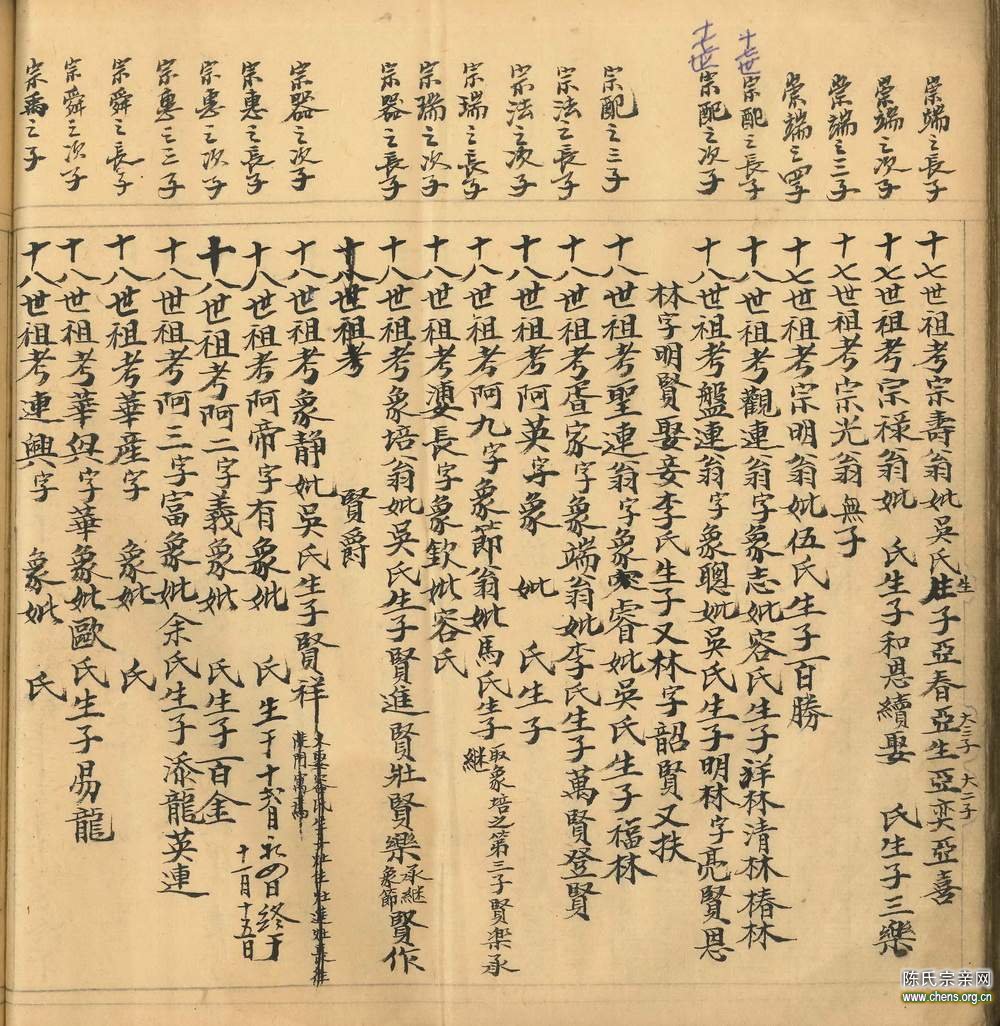 崇端之長子
十七世祖考宗壽翁妣吳氏生子亞春亞生亞奕亞喜
生
大三子
大二子
崇端之次子
十七世祖考宗祿翁妣 氏生子和恩續娶 氏生子三樂
崇端之三子
十七世祖考宗光翁無子
崇端之四子
十七世祖考宗明翁妣伍氏生子百勝
十七世
宗配之長子
十八世祖考觀連翁字象志妣容氏生子祥林清林椿林
十七世
宗配之次子
十八世祖考盤連翁字象聰妣吳氏生子明林字亮賢恩
林字明賢娶妾李氏生子又林字韶賢又扶
宗配之三子
十八世祖考聖連翁字象睿妣吳氏生子福林
宗法之長子
十八世祖考家字象端翁妣李氏生子萬賢登賢
宗法之次子
十八世祖考阿英字象 妣 氏生子
宗瑞之長子
十八世祖考阿九字象節翁妣馬氏生子取象培之第三子賢樂承繼
宗瑞之次子
十八世祖考長字象欽妣容氏
宗器之長子
十八世祖考象培翁妣吳氏生子賢進賢壯賢樂承繼象節賢作
十八世祖考 賢爵
宗器之次子
十八世祖考象静妣吳氏生子賢祥
宗惠之長子
十八世祖考阿帝字有象妣 氏 生于十月初四日終于十一月十五日
宗惠之次子
十八世祖考阿二字義象妣 氏生子百金
宗惠之三子
十八世祖考阿三字富象妣余氏生子添龍英連
宗舜之長子
十八世祖考華産字 象妣 氏
宗舜之次子
十八世祖考華與字華象妣歐氏生子易龍
宗禹之子
十八世祖考連興字 象妣 氏
陈氏宗亲网
www.chens.org.cn